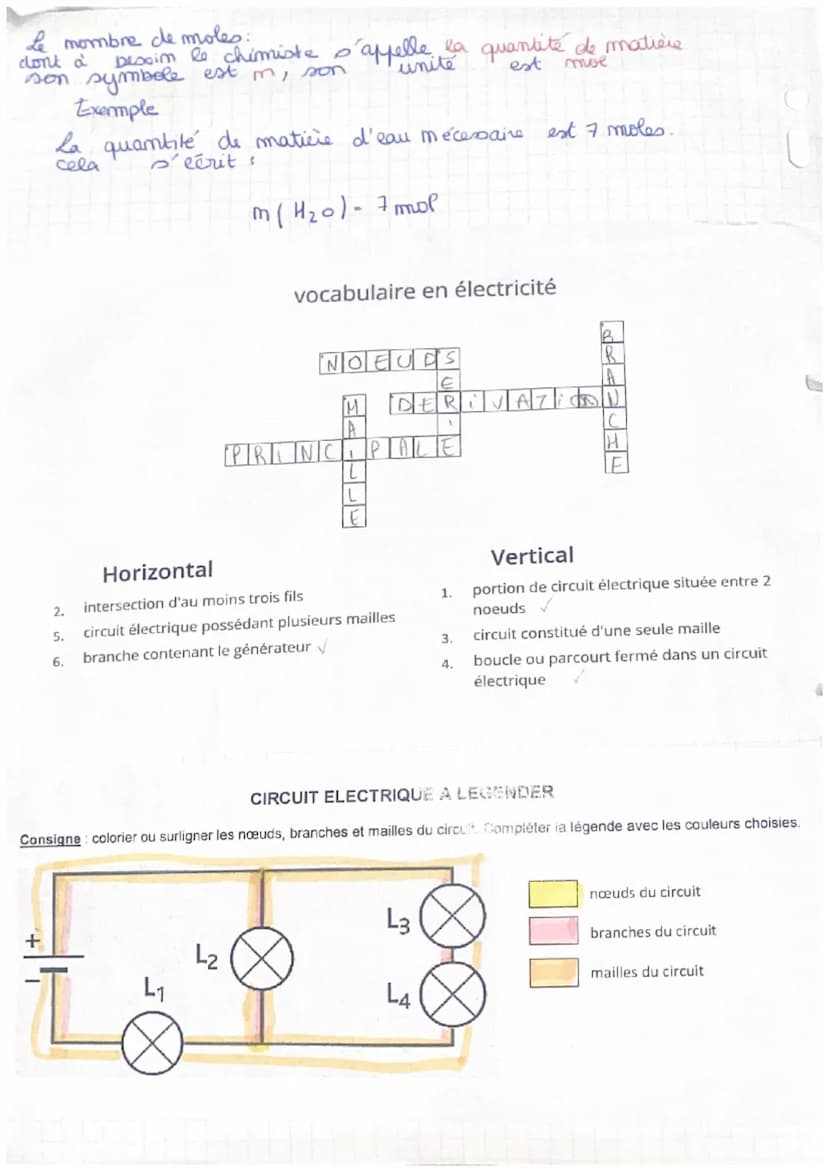 Le nombre de moles:
dont a besoin le chimiste s'appelle la quantité de matière
son symbole est n, son unité est mol
Exemple
La quantité de matière d'eau nécessaire est 7 moles.
cela s'écrit :
n(H2O)= 7 mol
vocabulaire en électricité
NOEUDS
BRANCHE
SERIE
DERIVATION
MAILLE
PRINCIPALE
Horizontal
2. intersection d'au moins trois fils
5. circuit électrique possédant plusieurs mailles
6. branche contenant le générateur √
Vertical
1. portion de circuit électrique située entre 2
noeuds ✓
3. circuit constitué d'une seule maille
4. boucle ou parcourt fermé dans un circuit
électrique ✓
CIRCUIT ELECTRIQUE A LEGENDER
Consigne : colorier ou surligner les nœuds, branches et mailles du circuit. Compléter la légende avec les couleurs choisies.
+
−
L1
L2
L3
L4
nœuds du circuit
branches du circuit
mailles du circuit